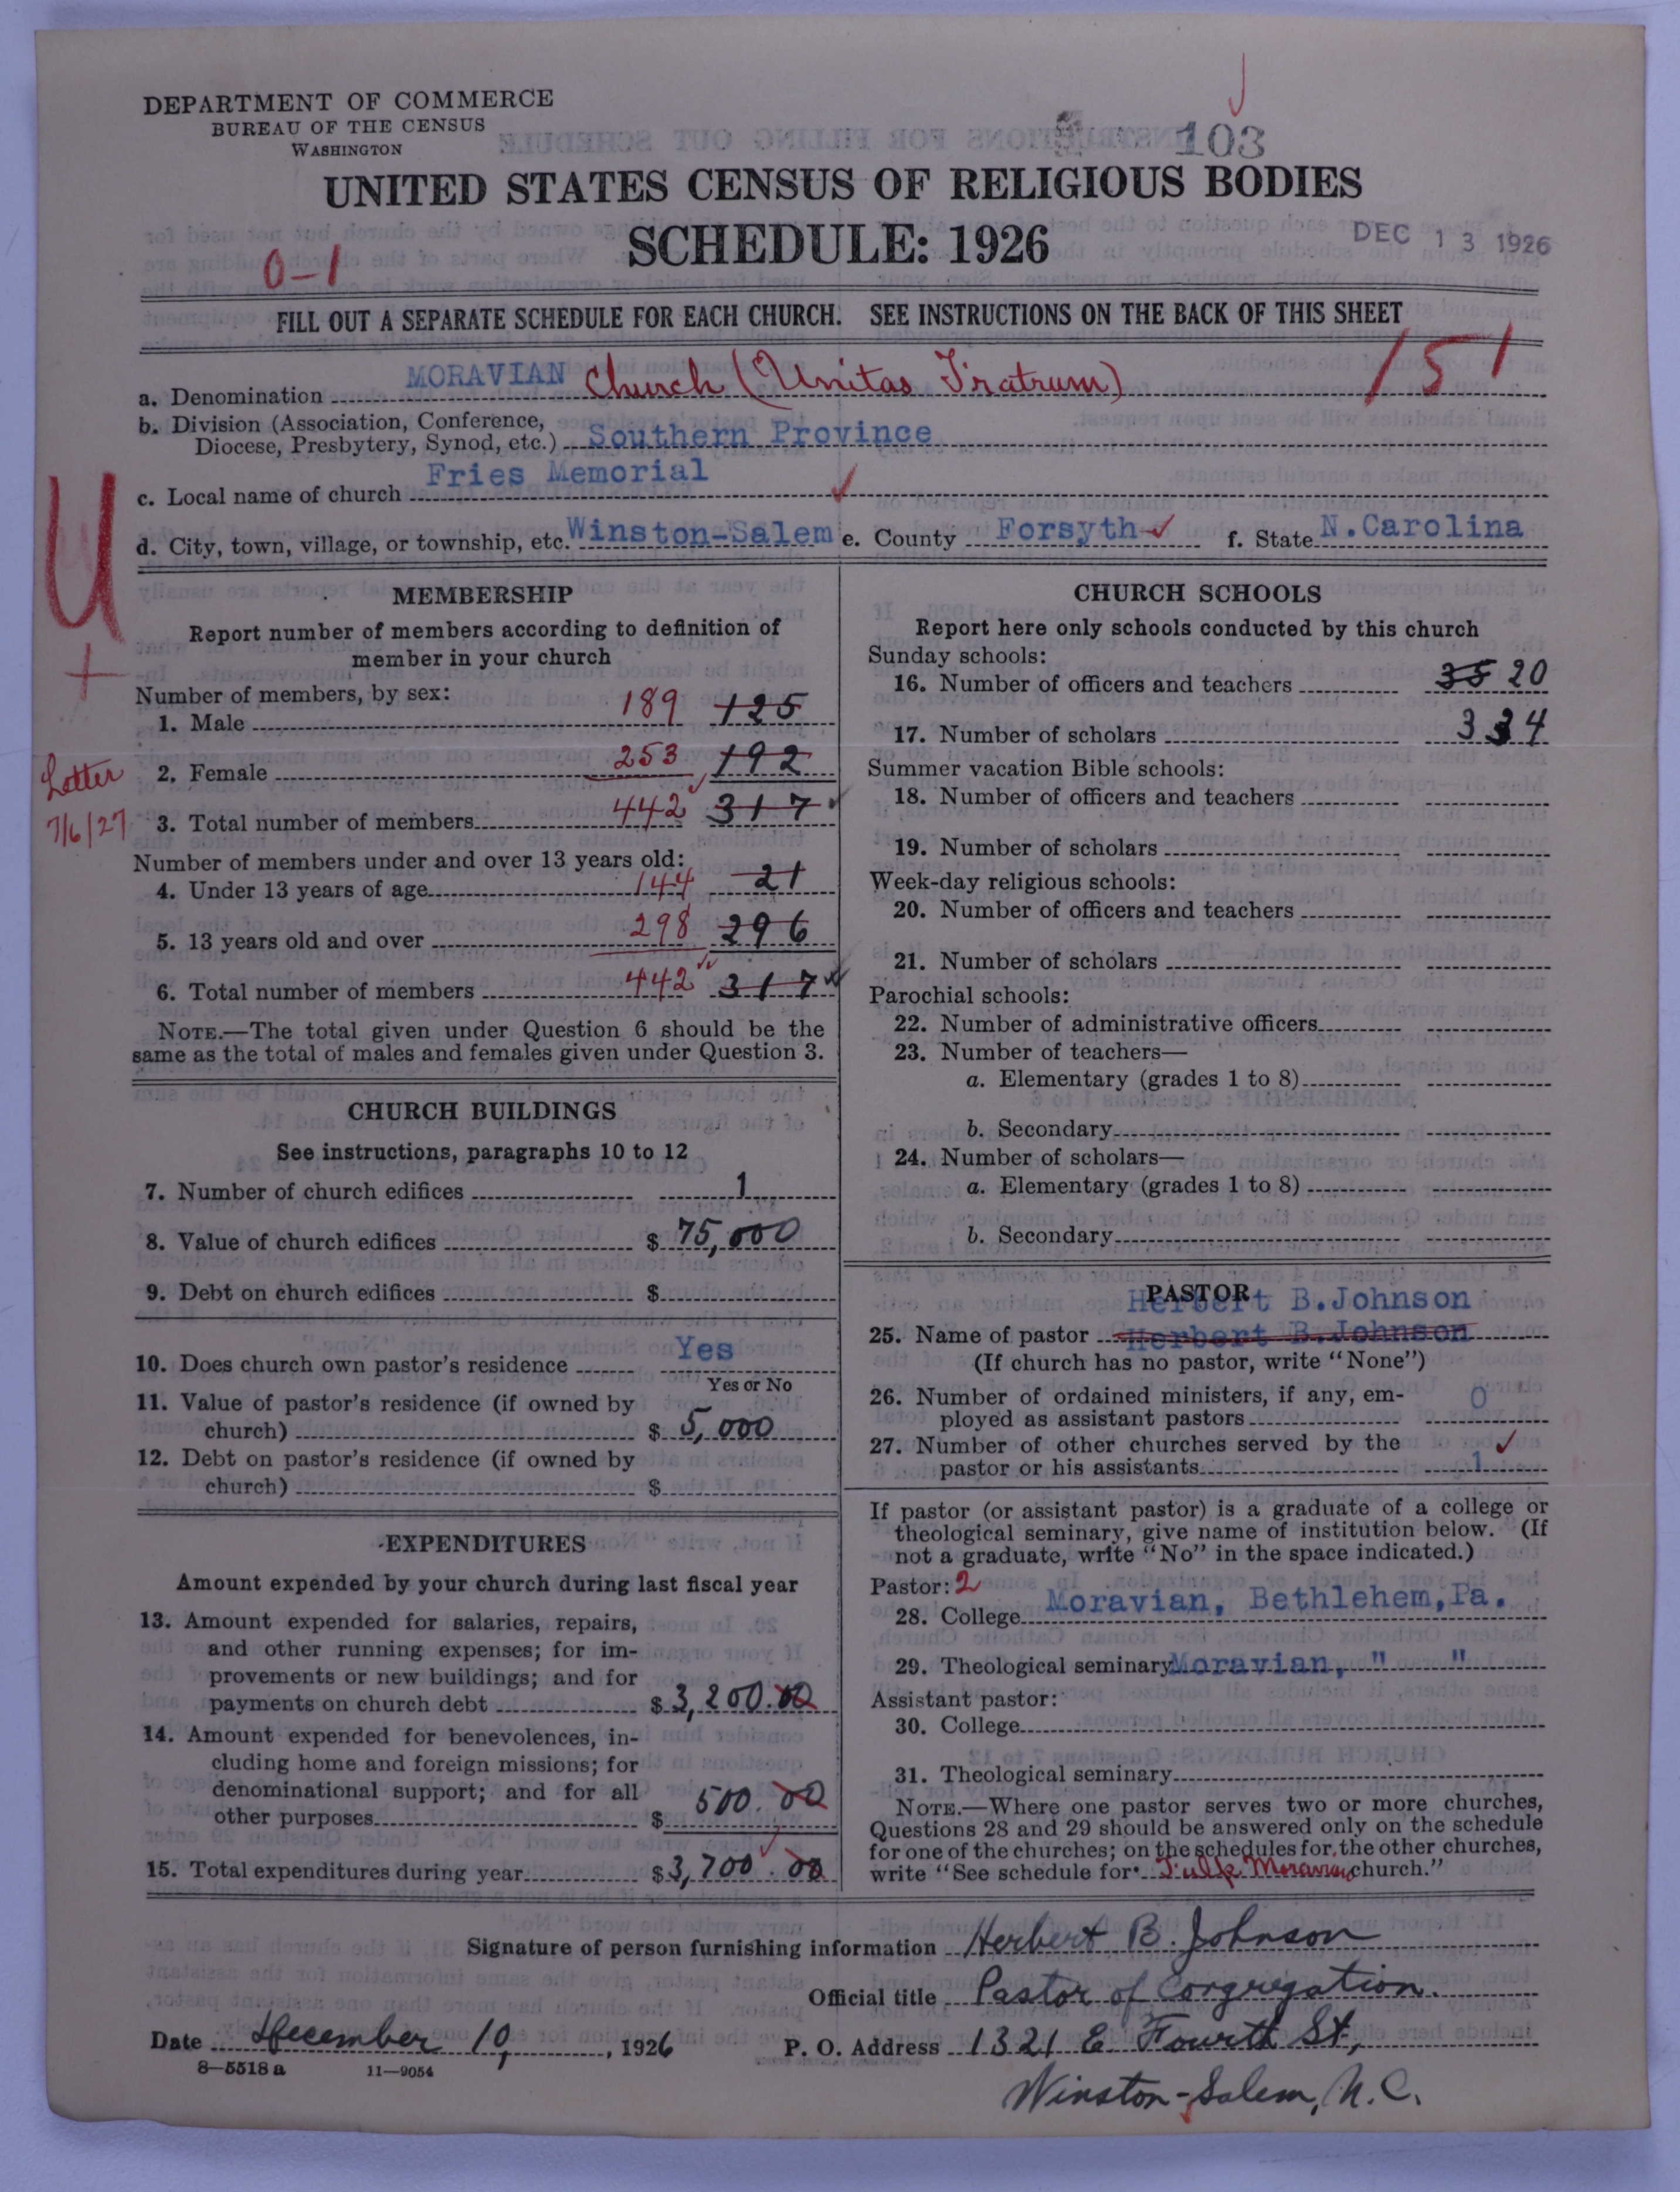 DEPARTMENT OF COMMERCE
BUREAU OF THE CENSUS
WASHINGTON
103
UNITED STATES CENSUS OF RELIGIOUS BODIES
SCHEDULE: 1926
DEC 13 1926
0-1
FILL OUT A SEPARATE SCHEDULE FOR EACH CHURCH. SEE INSTRUCTIONS ON THE BACK OF THIS SHEET
151
a. Denomination MORAVIAN Church (Unitas Fratrum)
b. Division (Association, Conference,
Diocese, Presbytery, Synod, etc.) Southern Province
c. Local name of church Fries Memorial
d. City, town, village, or township, etc. Winston-Salem e. County Forsyth f. State N.Carolina
U
+
Letter
7/6/27
MEMBERSHIP
Report number of members according to definition of
member in your church
Number of members, by sex:
1. Male 189 125
2. Female 253 192
3. Total number of members 442 317
Number of members under and over 13 years old:
4. Under 13 years of age 144 21
5. 13 years old and over 298 296
6. Total number of members 442 317
NOTE.—The total given under Question 6 should be the
same as the total of males and females given under Question 3.
CHURCH BUILDINGS
See instructions, paragraphs 10 to 12
7. Number of church edifices 1
8. Value of church edifices $ 75,000
9. Debt on church edifices $
10. Does church own pastor's residence Yes
Yes or No
11. Value of pastor's residence (if owned by
church) $ 5,000
12. Debt on pastor's residence (if owned by
church) $
EXPENDITURES
Amount expended by your church during last fiscal year
13. Amount expended for salaries, repairs,
and other running expenses; for im-
provements or new buildings; and for
payments on church debt $ 3,200.00
14. Amount expended for benevolences, in-
cluding home and foreign missions; for
denominational support; and for all
other purposes $ 500.00
15. Total expenditures during year $ 3,700.00
CHURCH SCHOOLS
Report here only schools conducted by this church
Sunday schools:
16. Number of officers and teachers 35 20
17. Number of scholars 334
Summer vacation Bible schools:
18. Number of officers and teachers
19. Number of scholars
Week-day religious schools:
20. Number of officers and teachers
21. Number of scholars
Parochial schools:
22. Number of administrative officers
23. Number of teachers—
a. Elementary (grades 1 to 8)
b. Secondary
24. Number of scholars—
a. Elementary (grades 1 to 8)
b. Secondary
PASTOR
Herbert B.Johnson
25. Name of pastor Herbert B.Johnson
(If church has no pastor, write "None")
26. Number of ordained ministers, if any, em-
ployed as assistant pastors 0
27. Number of other churches served by the
pastor or his assistants 1
If pastor (or assistant pastor) is a graduate of a college or
theological seminary, give name of institution below. (If
not a graduate, write "No" in the space indicated.)
Pastor: 2
28. College Moravian, Bethlehem,Pa.
29. Theological seminary Moravian, " "
Assistant pastor:
30. College
31. Theological seminary
NOTE.—Where one pastor serves two or more churches,
Questions 28 and 29 should be answered only on the schedule
for one of the churches; on the schedules for the other churches,
write "See schedule for Fulp Moravian church."
Signature of person furnishing information Herbert B. Johnson
Official title Pastor of Congregation.
Date December 10, 1926 P. O. Address 1321 E Fourth St,
8-5518 a 11-9054
Winston-Salem, N.C.